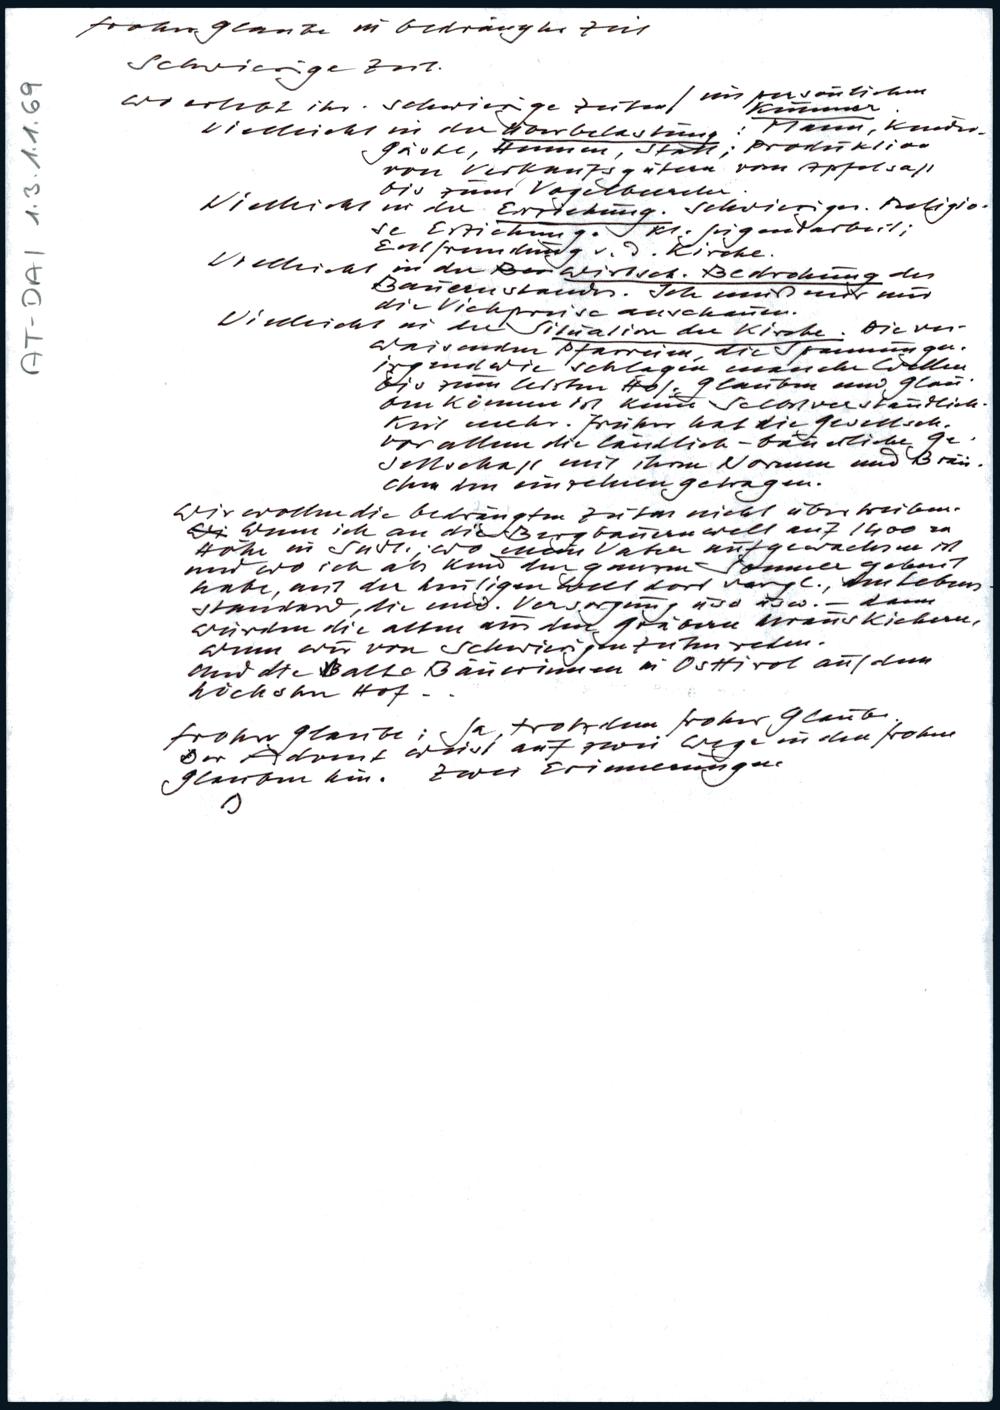 AT-DAI 1.3.1.1.69
froher Glaube in bedrängter Zeit
Schwierige Zeit.
Wo erlebt ihr schwierige Zeiten / im persönlichen
Kummer.
Vielleicht in der Überbelastung: Mann, Kinder,
Gäste, Hennen, Stall; Produktion
von Verkaufsgütern vom Apfelsaft
bis zum Vogelbeerler.
Vielleicht in der Erziehung. Schwieriger. Religiö-
se Erziehung. Kl. Jugendarbeit;
Entfremdung v. d. Kirche.
Vielleicht in der Ber wirtsch. Bedrohung des
Bauernstandes. Ich muß mir nur
die Viehpreise anschauen.
Vielleicht in der Situation der Kirche. Die ver-
waisenden Pfarreien, die Spannungen.
irgendwie schlagen manche Wellen
bis zum letzten Hof. Glauben und Glau-
ben können ist keine Selbstverständlich-
keit mehr. Früher hat die Gesellsch.
vor allem die ländlich-bäuerliche Ge-
sellschaft mit ihren Normen und Bräu-
chen den einzelnen getragen.
Wir wollen die bedrängten Zeiten nicht übertreiben.
Wi Wenn ich an die Bergbauernwelt auf 1400 m
Höhe in Südt., wo mein Vater aufgewachsen ist
und wo ich als Kind den ganzen Sommer geheut
habe, mit der heutigen Welt dort vergl., den Lebens-
standard, die med. Versorgung usw usw. – dann
würden die alten aus den Gräbern herauskichern,
wenn wir von schwierigen Zeiten reden.
Und die alte Bäuerinnen in Osttirol auf dem
höchsten Hof - . .
froher Glaube: Ja, trotzdem froher Glaube.
Der Advent weist auf zwei Wege in den frohen
Glauben hin. Zwei Erinnerungen